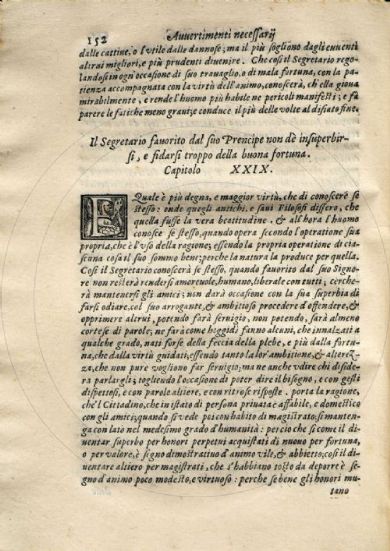 152 Auuertimenti necessarij
dalle cattiue, o l'vtile dalle dannose; ma il più sogliono dagli euuenti
altrui migliori, e più prudenti diuenire. Che così il Segretario rego-
landosi in ogn'occasione di suo trauaglio, o di mala fortuna, con la pa-
tienza accompagnata con la virtù dell'animo, conoscerà, ch'ella gioua
mirabilmente, e rende l'huomo più habile ne pericoli manifesti; e fa
parere le fatiche meno graui e conduce il più delle volte al disiato fine.
Il Segretario fauorito dal suo Prencipe non dè insuperbir-
si, e fidarsi troppo della buona fortuna.
Capitolo XXIX.
Quale è più degna, e maggior virtù, che di conoscere se
stesso: onde quegli antichi, e saui Filosofi dissero, che
quella fusse la vera beatitudine, & all'hora l'huomo
conosce se stesso, quando opera secondo l'operatione sua
propria, che è l'vso della ragione; essendo la propria operatione di cia-
scuna cosa il suo sommo bene; perche la natura la produce per quella.
Così il Segretario conoscerà se stesso, quando fauorito dal suo Signo-
re non resterà rendersi amoreuole, humano, liberale con tutti; cerche-
rà mantenersi gli amici; non darà occasione con la sua superbia di
farsi odiare, col suo arrogante, & ambitioso procedere d'offendere, &
opprimere altrui, potendo farà seruigio, non potendo, sarà almeno
cortese di parole; ne farà come hoggidì fanno alcuni, che innalzati a
qualche grado, nati forse della feccia della plebe, e più dalla fortu-
na, che dalla virtù guidati, essendo tanto la lor ambitione, & alterez-
za, che non pure vogliono far seruigio; ma ne anche vdire chi diside-
ra parlargli; togliendo l'occasione di poter dire il bisogno, e con gesti
dispettosi, e con parole altiere, e con ritrose risposte. porta la ragione,
che'l Cittadino, che in istato di persona priuata è affabile, e domestico
con gli amici; quando si vede poi con habito di magistrato, si manten-
ga con lato nel medesimo grado d'humanità: percio che sì come il di-
uentar superbo per honori perpetui acquistati di nuouo per fortuna,
o per valore, è segno dimostratiuo d'animo vile, & abbietto; così il di-
uentare altiero per magistrati, che s'habbiano tosto da deporre è se-
gno d'animo poco modesto, e virtuoso: perche se bene gli honori mu
tano